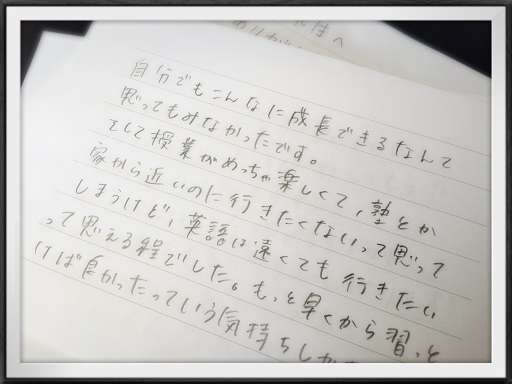 自分でもこんなに成長できるなんて
思ってもみなかったです。
そして授業がめっちゃ楽しくて、塾とか
家から近いのに行きたくないって思って
しまうけど、英語は遠くても行きたい
って思える程でした。もっと早くから習っと
けば良かったっていう気持ちしか